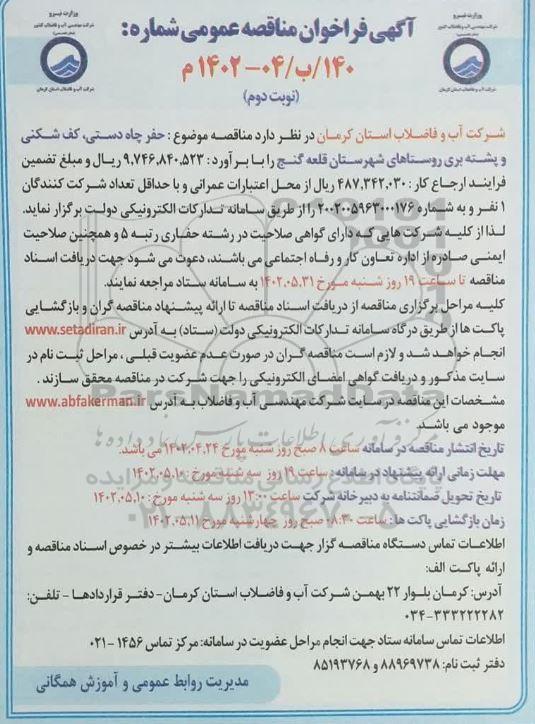 وزارت نیرو
شرکت مهندسی آب و فاضلاب کشور
شرکت آب و فاضلاب استان کرمان
وزارت نیرو
شرکت مهندسی آب و فاضلاب کشور
شرکت آب و فاضلاب استان کرمان
آگهی فراخوان مناقصه عمومی شماره:
۱۴۰/ب/۰۴-۱۴۰۲ م
(نوبت دوم)
شرکت آب و فاضلاب استان کرمان در نظر دارد مناقصه موضوع : حفر چاه دستی، کف شکنی
و پشته بری روستاهای شهرستان قلعه گنج را با برآورد : ۹,۷۴۶,۸۴۰,۵۲۳ ریال و مبلغ تضمین
فرایند ارجاع کار : ۴۸۷,۳۴۲,۰۳۰ ریال از محل اعتبارات عمرانی و با حداقل تعداد شرکت کنندگان
۱ نفر و به شماره ۲۰۰۲۰۰۵۹۶۳۰۰۰۱۷۶ را از طریق سامانه تدارکات الکترونیکی دولت برگزار نماید.
لذا از کلیه شرکت هایی که دارای گواهی صلاحیت در رشته حفاری رتبه ۵ و همچنین صلاحیت
ایمنی صادره از اداره تعاون کار و رفاه اجتماعی می باشند، دعوت می شود جهت دریافت اسناد
مناقصه تا ساعت ۱۹ روز شنبه مورخ ۱۴۰۲.۰۵.۳۱ به سامانه ستاد مراجعه نمایند.
کلیه مراحل برگزاری مناقصه از دریافت اسناد مناقصه تا ارائه پیشنهاد مناقصه گران و بازگشایی
پاکت ها از طریق درگاه سامانه تدارکات الکترونیکی دولت (ستاد) به آدرس www.setadiran.ir
انجام خواهد شد و لازم است مناقصه گران در صورت عدم عضویت قبلی ، مراحل ثبت نام در
سایت مذکور و دریافت گواهی امضای الکترونیکی را جهت شرکت در مناقصه محقق سازند .
مشخصات این مناقصه در سایت شرکت مهندسی آب و فاضلاب به آدرس www.abfakerman.ir
موجود می باشد.
تاریخ انتشار مناقصه در سامانه ساعت ۸ صبح روز شنبه مورخ ۱۴۰۲.۰۴.۲۴ می باشد.
مهلت زمانی ارائه پیشنهاد در سامانه : ساعت ۱۹ روز سه شنبه مورخ : ۱۴۰۲.۰۵.۱۰
تاریخ تحویل ضمانتنامه به دبیرخانه شرکت ساعت ۱۳:۰۰ روز سه شنبه مورخ : ۱۴۰۲.۰۵.۱۰
زمان بازگشایی پاکت ها : ساعت ۰۸:۳۰ صبح روز چهارشنبه مورخ ۱۴۰۲.۰۵.۱۱
اطلاعات تماس دستگاه مناقصه گزار جهت دریافت اطلاعات بیشتر در خصوص اسناد مناقصه و
ارائه پاکت الف:
آدرس: کرمان بلوار ۲۲ بهمن شرکت آب و فاضلاب استان کرمان- دفتر قراردادها - تلفن:
۰۳۴-۳۳۳۲۲۲۲۸۲
اطلاعات تماس سامانه ستاد جهت انجام مراحل عضویت در سامانه: مرکز تماس ۱۴۵۶-۰۲۱
دفتر ثبت نام: ۸۸۹۶۹۷۳۸ و ۸۵۱۹۳۷۶۸
مدیریت روابط عمومی و آموزش همگانی